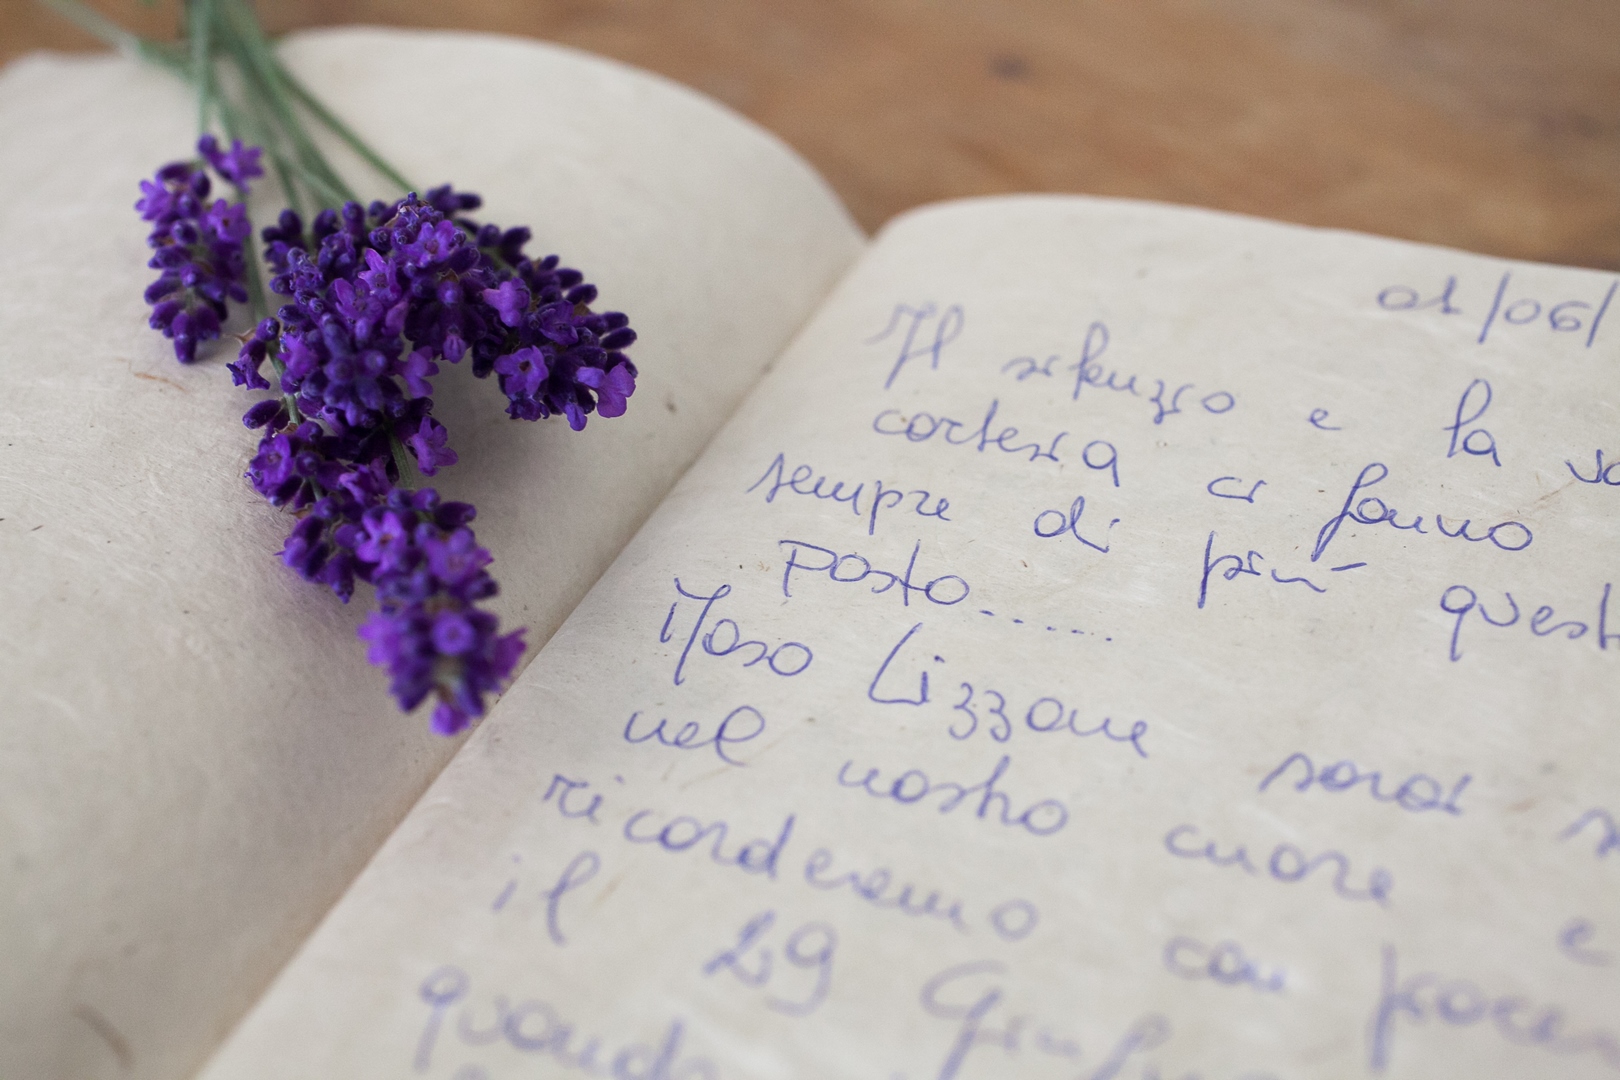 01/06/
Il silenzio e la
cortesia ci fanno
sempre di più quest
posto......
Maso Lizzone sarai
nel nostro cuore e
ricorderemo con piacer
il 29 Giugno
quando